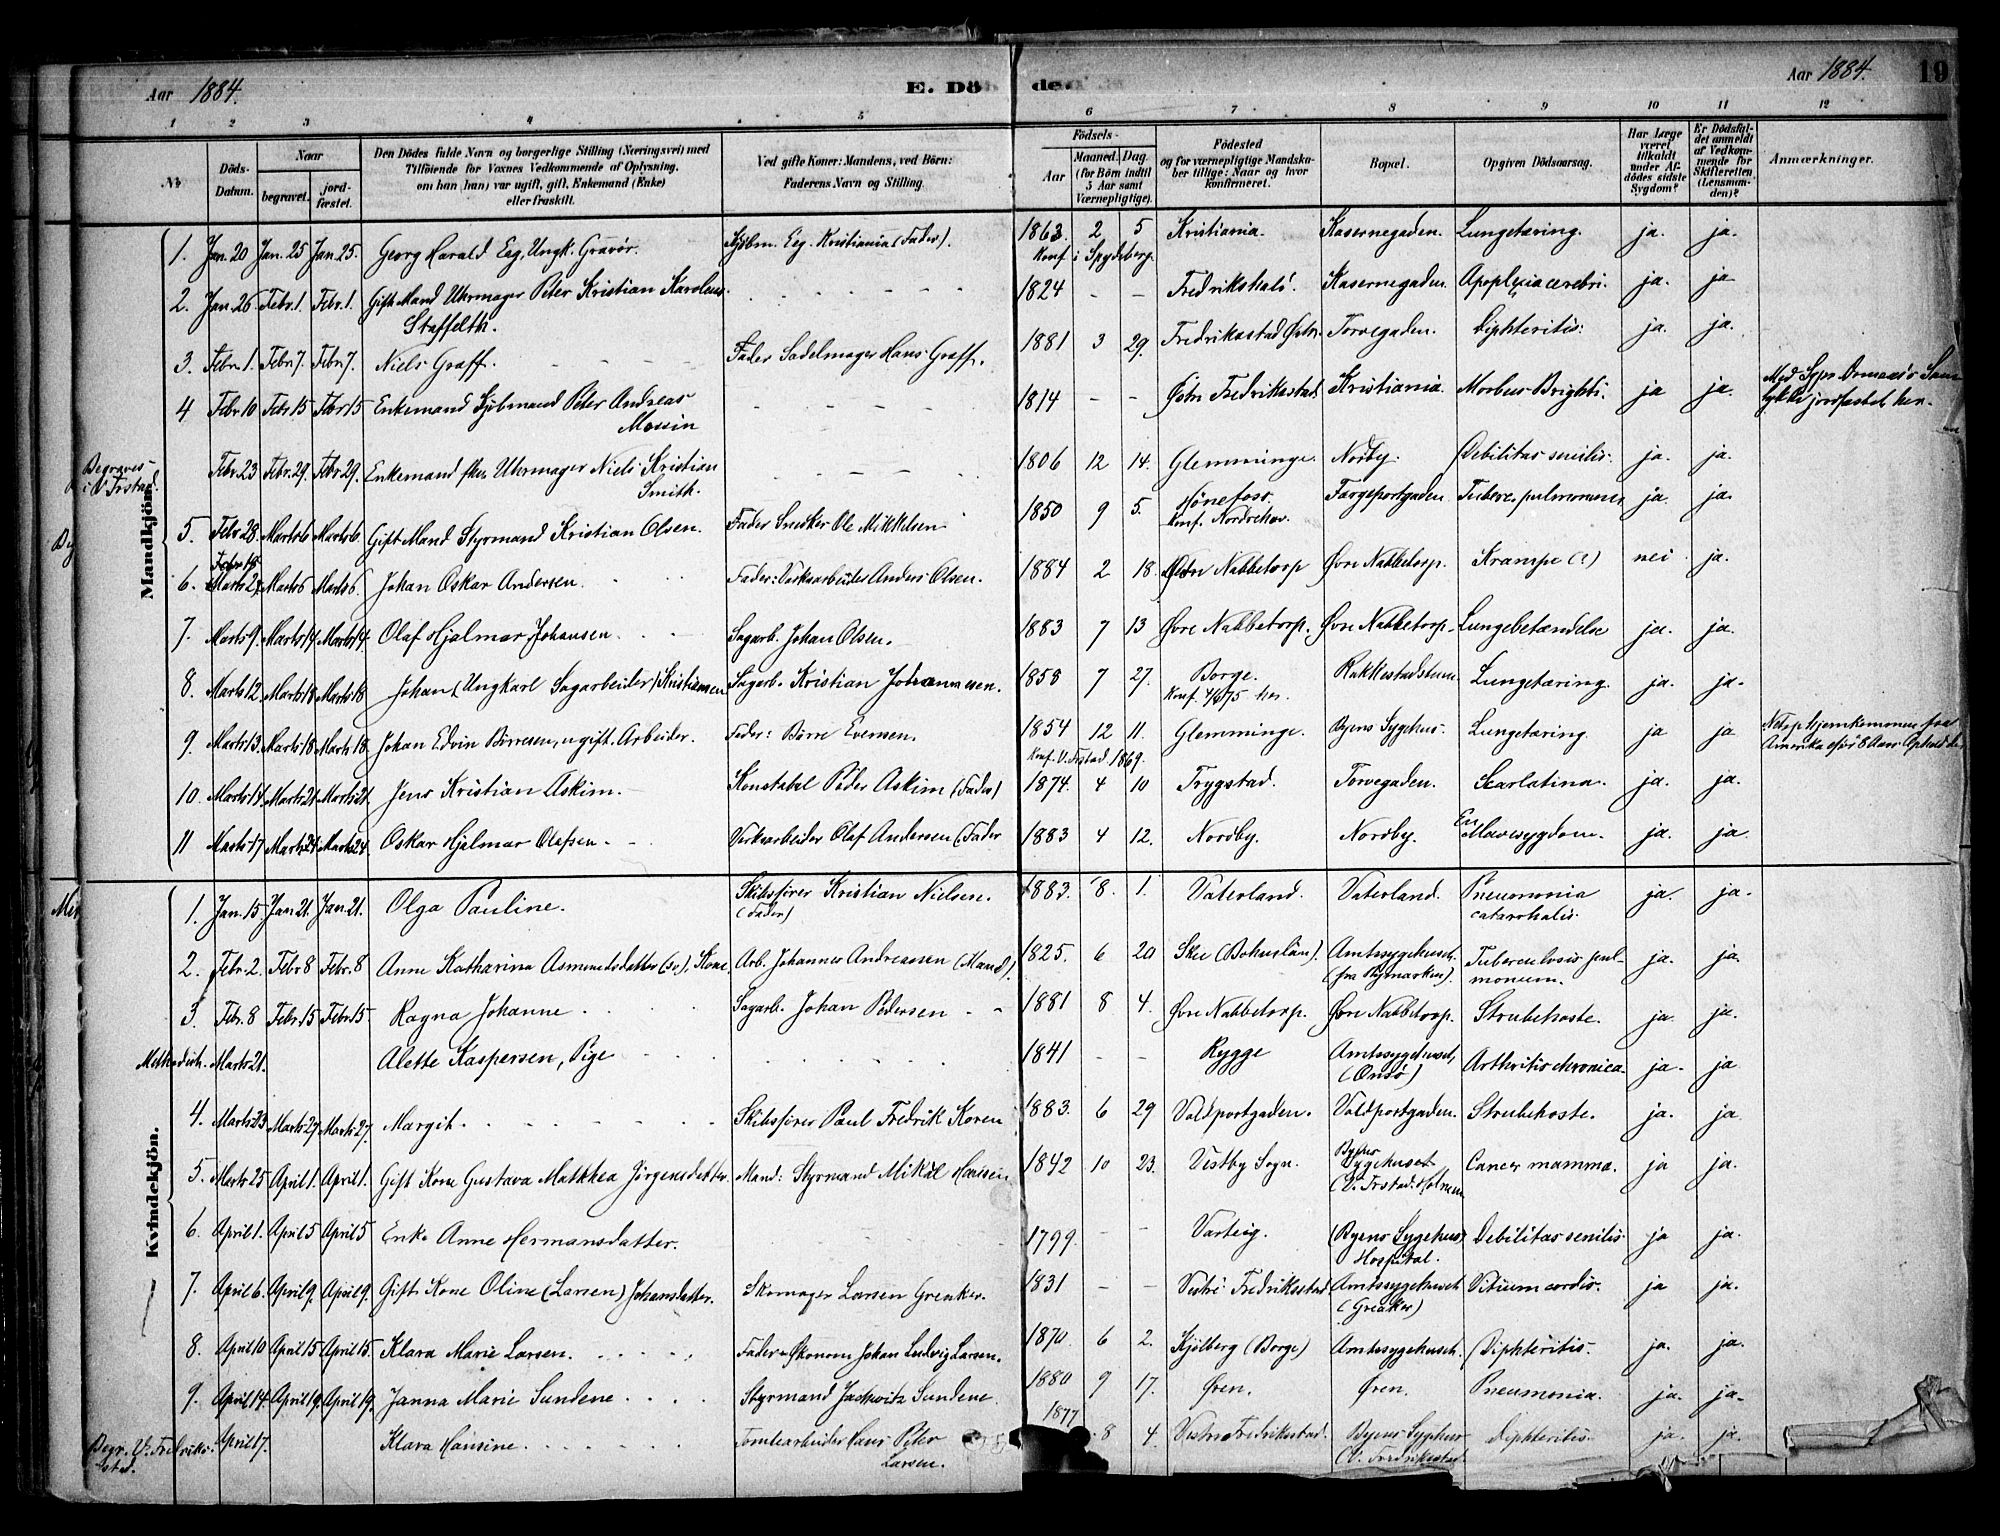 Aar 1884. E. Dö de. Aar 1884. 19
1 2 3 4 5 6 7 8 9 10 11 12
№ Döds-Datum. Naar begravet. jordfæstet. Den Dödes fulde Navn og borgerlige Stilling (Næringsvei) med Tilföiende for Voxnes Vedkommende af Oplysning, om han (hun) var ugift, gift, Enkemand (Enke) eller fraskilt. Ved gifte Koner: Mandens, ved Börn: Faderens Navn og Stilling. Födsels- Aar Maaned. Dag. (for Börn indtil 5 Aar samt Værnepligtige). Födested og for værnepligtige Mandskaber tillige: Naar og hvor konfirmeret. Bopæl. Opgiven Dödsaarsag. Har Læge været tilkaldt under Afdödes sidste Sygdom? Er Dödsfaldet anmeldt af Vedkommende for Skifteretten (Lensmanden)? Anmærkninger.
Mandkjön.
1. Jan. 20 Jan. 25 Jan. 25. Georg Harald Eeg, Ungk. Gravör. Kjöbm. Eeg. Kristiania (Fader). 1863. 2 5 Kristiania. Kasernegaden. Lungetæring. ja. ja.
Konf. i Spydeberg.
2. Jan. 26 Febr. 1. Febr. 1. Gift Mand Uhrmager Peter Kristian Karolius 1824 - - Fredrikshald. Kasernegaden. Apoplexia cerebri. ja. ja
Staffelth.
3. Febr. 1. Febr. 7. Febr. 7. Niels Graff. Fader Sadelmager Hans Graff. 1881 3 29. Fredriksstad Østre. Torvegaden. Diphteritis. ja. ja.
4 Febr. 10 Febr. 15 Febr. 15 Enkemand Kjöbmand Peter Andreas 1814 - - Østre Fredriksstad. Kristiania. Morbus Brighti. ja ja.
Mossin
jordfæstet her.
Begraves i V. Frstad. Febr. 23 Febr. 29. Febr. 29. Enkemand fhv. Uhrmager Niels Kristian 1806 12 14. Glemminge. Nordby. Debilitas senilis. ja. ja.
Smith.
5. Febr. 28. Marts 6 Marts 6. Gift Mand Styrmand Kristian Olsen. Fader Snedker Ole Mikkelsen 1850 9 5. Hönefoss. Færgeportgaden. Tuberc. pulmonum ja. ja.
Konf. Norderhov.
6. Marts 2. Marts 6 Marts 6. Johan Oskar Andersen. Fader: Værksarbeider Anders Olsen. 1884 2 18. Øvre Nabbetorp Øvre Nabbetorp. Krampe (?) nei ja.
7. Marts 9. Marts 14 Marts 14. Olaf Hjalmar Johansen. Sagarb. Johan Olsen. 1883 7 13 Øvre Nabbetorp. Øvre Nabbetorp. Lungebetændelse ja. ja.
8. Marts 12. Marts 18 Marts 18 Johan (Ungkarl Sagarbeider) Kristiansen Sagarb. Kristian Johannesen. 1858 7 27. Borge. Rakkestadstuen. Lungetæring. ja. ja.
Konf. 4/4 75 her.
9. Marts 13. Marts 18 Marts 18. Johan Edvin Börresen, ugift. Arbeider. Fader: Börre Evensen. 1854 12 11. Glemminge. Byens Sygehus. Lungetæring. ja ja Netop hjemkommen fra
Konf. V. Frstad. 1869. Amerika efter 8 Aars Ophold der
10. Marts 14. Marts 21 Marts 21. Jens Kristian Askim. Konstabel Peder Askim (Fader) 1874. 4 10 Trygstad. Torvegaden. Scarlatina. ja. ja.
11 Marts 17 Marts 24 Marts 24. Oskar Hjalmar Olafsen. Værksarbeider Olaf Andersen (Fader 1883 4 12. Nordby. Nordby. En Mavesygdom. ja. ja
Kvindekjön.
1. Jan. 15 Jan. 21. Jan. 21. Olga Pauline. Skibsförer Kristian Nielsen. 1883. 8. 1. Vaterland. Vaterland. Pneumonia ja. ja.
(Fader) catarrhalis.
2. Febr. 2. Febr. 8 Febr. 8. Anne Katharina Asmundsdatter (sv), Kone Arb. Johannes Andreassen (Mand). 1825. 6 20 Skee (Bohuslän). Amtssygehuset. Tuberculosis pul- ja. ja.
monum.
3. Febr. 8 Febr. 15 Febr. 15 Ragna Johanne Sagarb. Johan Pedersen 1881 8 4. Øvre Nabbetorp. Øvre Nabbetorp. Strubehoste. ja. ja.
Methodist. Marts 21. Alette Kaspersen, Pige 1841 - - Rygge Amtssygehuset, Arthritis chronica. ja. ja
(Onsö)
4. Marts 23 Marts 27 Marts 27. Margit. Skibsförer Paul Fredrik Koren 1883. 6 29 Voldportgaden. Voldportgaden. Strubehoste. ja. ja
5. Marts 25 April 1. April 1. Gift Kone Gustava Mathea Jörgensdatter. Mand: Styrmand Mikal Hansen 1842 10 23. Vestby Sogn. Byens Sygehuset Cancer mamma. ja ja.
(V. Frstad. Holmen
6. April 1. April 5 April 5 Enke Anne Hermansdatter. 1799. - - Varteig. (Byens Sygehus) Debilitas senilis ja ja.
Hospital.
7. April 6. April 9. April 9. Gift Kone Oline (Larsen) Johansdatter. Skomager Larsen Greaker. 1831 - - Vestre Fredriksstad Amtssygehuset. Vitium cordis. ja ja.
(Greaker)
8. April 10 April 15 April 15. Klara Marie Larsen. Fader: Økonom Johan Ludvig Larsen. 1870. 6 2. Kjölberg (Borge) Amtssygehuset. Diphteritis. ja. ja.
9. April 14. April 19. April 19. Janna Marie Sundene Styrmand Sundene 1880 9 17. Øren. Øren. Pneumonia. ja. ja.
Begr. V. Fredriksstad. April 17. Klara Hansine Tomtearbeider Hans Peter 1877 8 4. Vestre Fredriksstad. Byens Sygehus Diphteritis. ja. ja.
Larsen. (V. Fredriksstad.